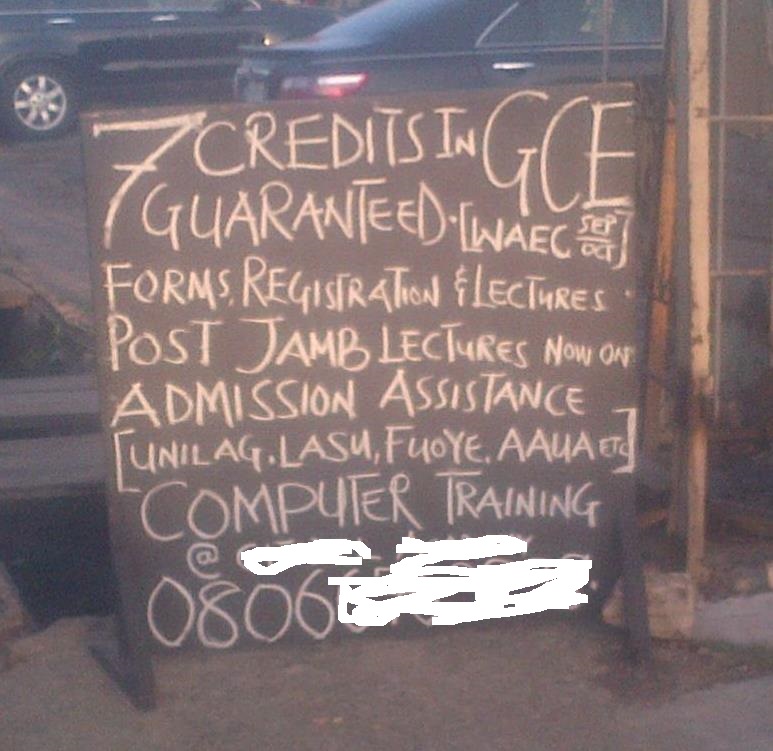 7 CREDITS IN GCE
GUARANTEED. [WAEC SEP/OCT]
FORMS, REGISTRATION & LECTURES.
POST JAMB LECTURES NOW ON
ADMISSION ASSISTANCE
[UNILAG. LASU, FUOYE. AAUA ETC]
COMPUTER TRAINING
@
0806